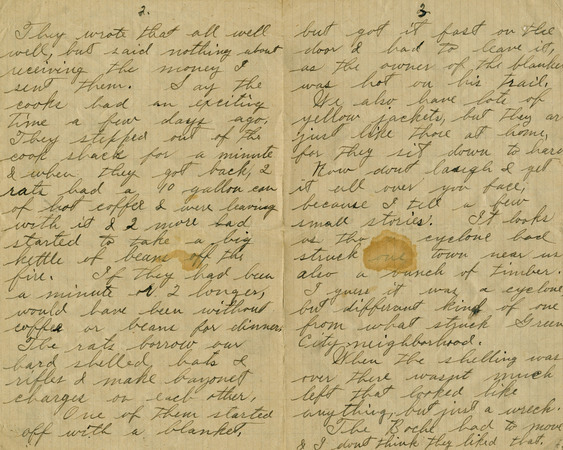 2.
They wrote that all well
well, but said nothing about
receiving the money I
sent them. I say the
cooks had an exciting
time a few days ago.
They stepped out of the
cook shack for a minute
& when they got back, 2
rats had a 10 gallon can
of hot coffee & were leaving
with it & 2 more had
started to take a big
kettle of beans off the
fire. If they had been
a minute or 2 longer,
would have been without
coffee or beans for dinner.
The rats borrow our
hard shelled hats &
rifles & make bayonet
charges on each other.
One of them started
off with a blanket,
3.
but got it fast on the
door & had to leave it,
as the owner of the blanket
was hot on his trail.
We also have lots of
yellow jackets, but they are
just like those at home,
for they sit down to hard
Now dont laugh & get
it all over you face,
because I tell a few
small stories. It looks
as tho cyclone had
struck one town near us
also a bunch of timber.
I guess it was a cyclone
but different kind of one
from what struck Green
City neighborhood.
When the shelling was
over there wasnt much
left that looked like
anything, but just a wreck.
The Boche had to move
& I dont think they liked that.